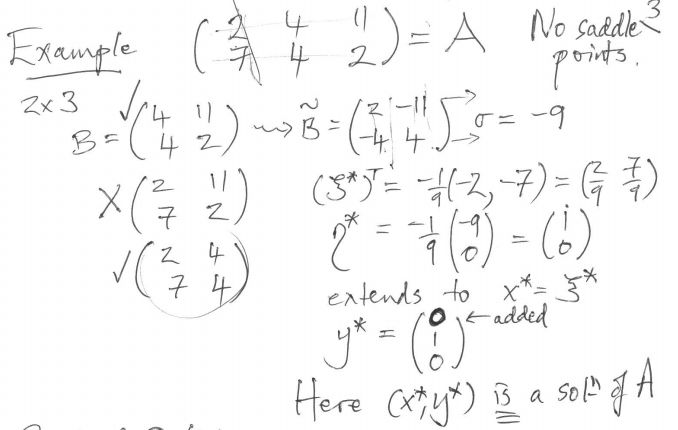 Example (2 4 11
7 4 2) = A No saddle 3
points.
2x3
✓ B = (4 11
4 2) ⇝ B̃ = (2 -11
-4 4) → → σ = -9
X (2 11
7 2)
(ξ*)ᵀ = -1/9 (-2, -7) = (2/9 7/9)
✓ (2 4
7 4)
η* = -1/9 (-9
0) = (1
0)
extends to x* = ξ*
y* = (0
1
0) ← added
Here (x*, y*) is a solⁿ of A